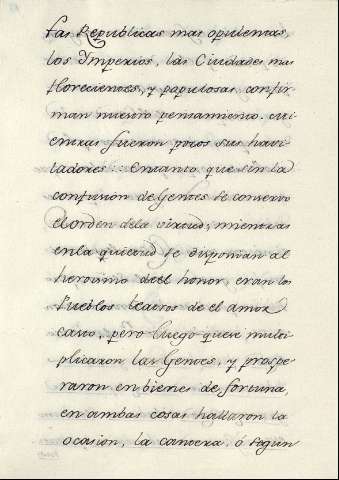 las Republicas mas opulentas,
los Imperios, las Ciudades mas
florecientes, y populosas confir-
man nuestro pensamiento. mi-
entras fueron pocos sus havi-
tadores: Entanto que sin la
confusion de Gentes se conservò
el orden dela virtud, mientras
enla quietud se disponian al
heroismo del honor, eran los
Pueblos teatros de el amor
casto, pero luego que se multi
plicaron las Gentes, y prospe-
raron en bienes de fortuna,
en ambas cosas hallaron la
ocasion, la cantera, ò segun